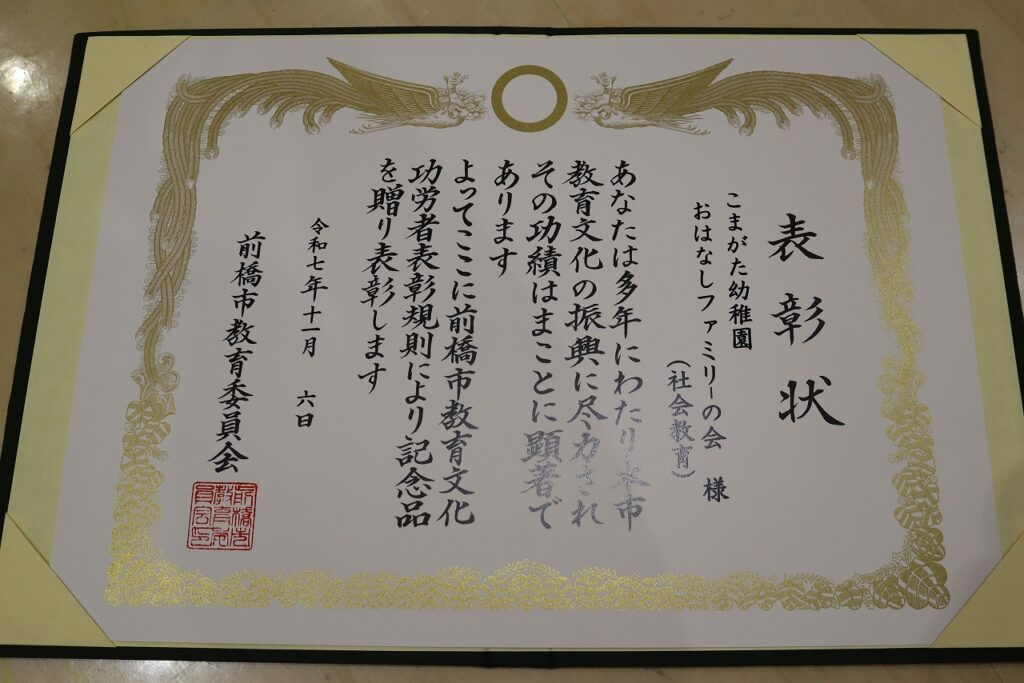 表彰状
こまがた幼稚園
おはなしファミリーの会 様
（社会教育）
あなたは多年にわたり本市
教育文化の振興に尽力され
その功績はまことに顕著で
あります
よってここに前橋市教育文化
功労者表彰規則により記念品
を贈り表彰します
令和七年十一月 六日
前橋市教育委員会